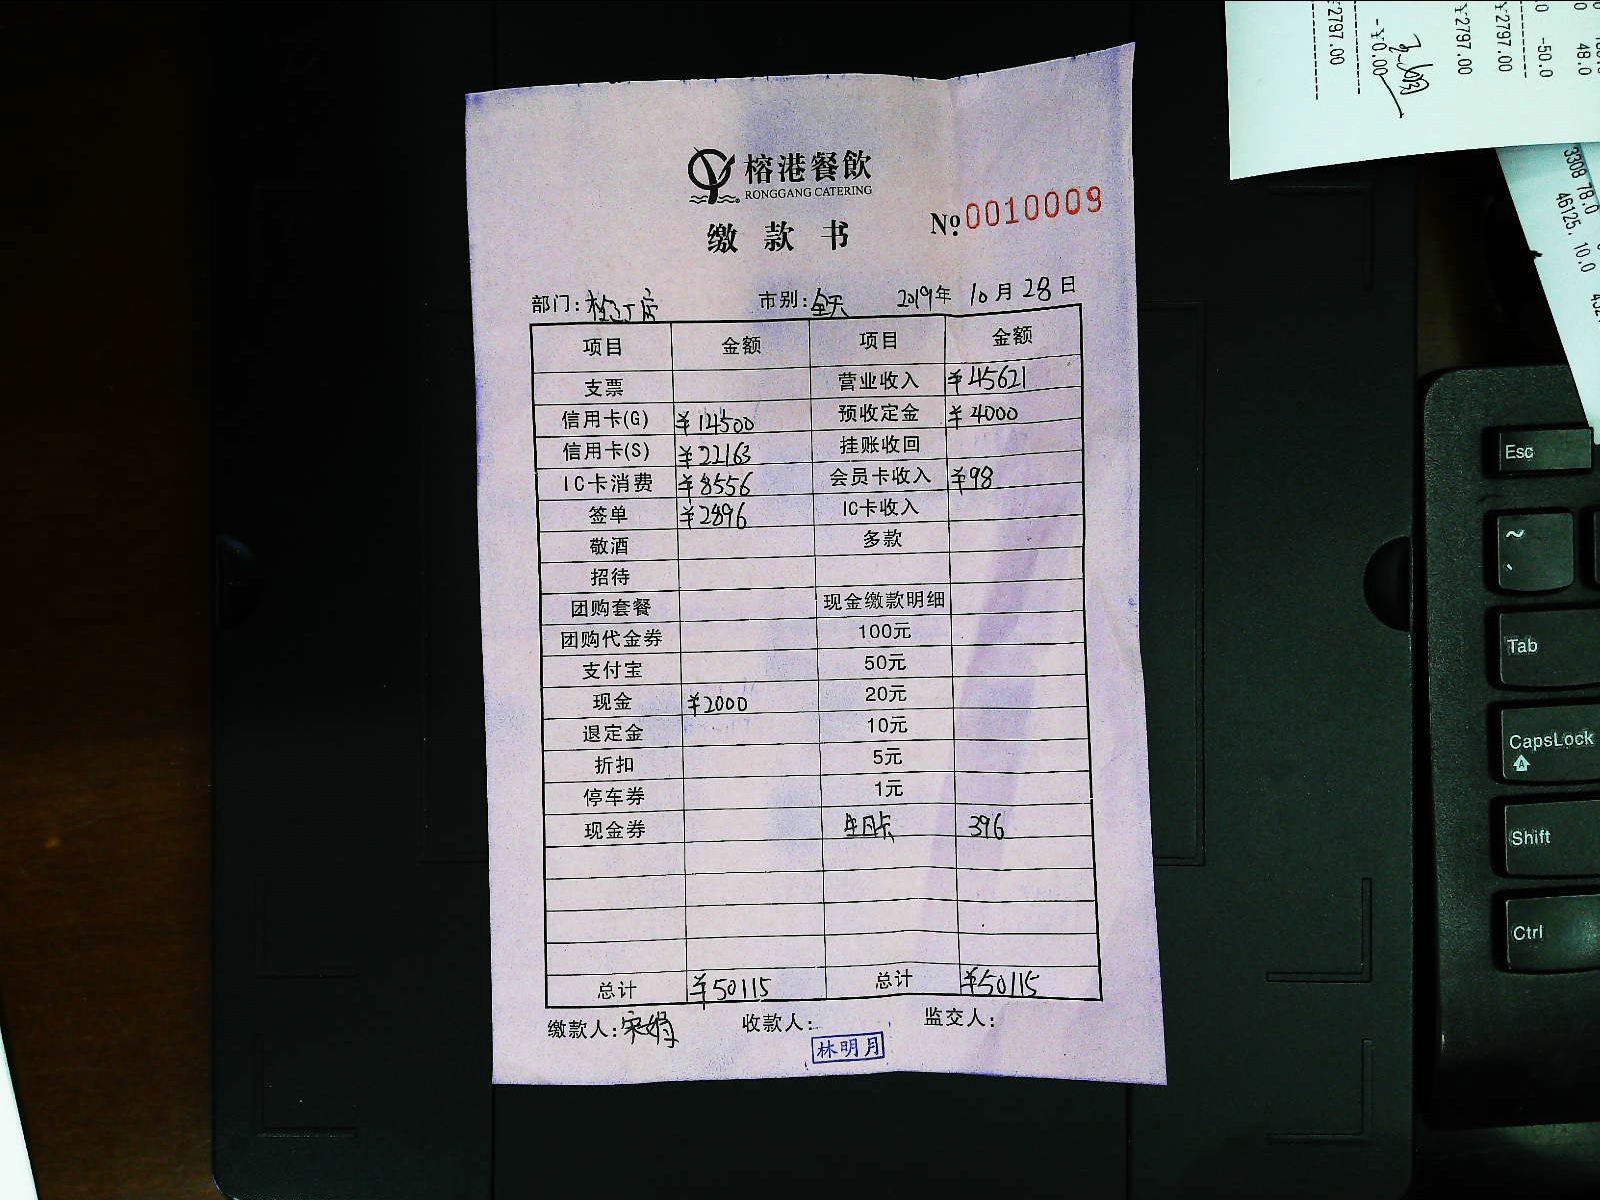 榕港餐飲
RONGGANG CATERING
缴款书 № 0010009
部门: 市别:全天 2019年 10月 28日
项目 金额 项目 金额
支票 营业收入 ¥45621
信用卡(G) ¥14500 预收定金 ¥4000
信用卡(S) ¥22163 挂账收回
IC卡消费 ¥8556 会员卡收入 ¥98
签单 ¥2896 IC卡收入
敬酒 多款
招待
团购套餐 现金缴款明细
团购代金券 100元
支付宝 50元
现金 ¥2000 20元
退定金 10元
折扣 5元
停车券 1元
现金券 生日卡 396
总计 ¥50115 总计 ¥50115
缴款人:宋娟 收款人: 监交人:
林明月
48.0
-50.0
¥2797.00
¥2797.00
-¥0.00
¥2797.00
3308 78.0
46125. 10.0
Esc
~
Tab
CapsLock
A
Shift
Ctrl